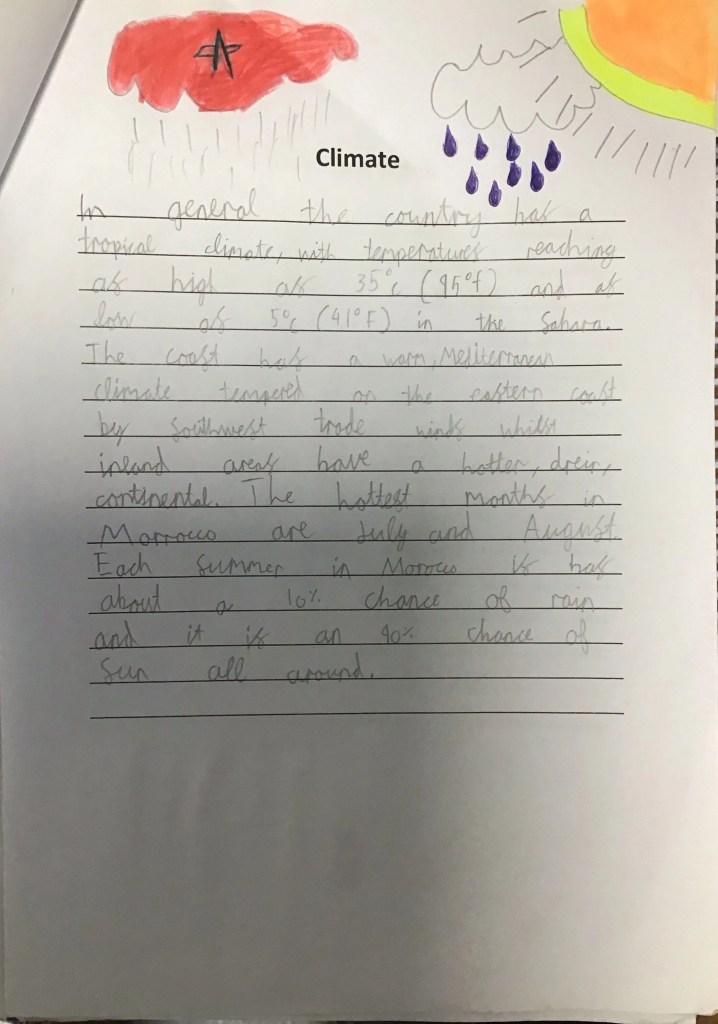 Climate
In general the country has a
tropical climate, with temperatures reaching
as high as 35°c (95°f) and as
low as 5°c (41°F) in the Sahara.
The coast has a warm, Mediterranean
climate tempered on the eastern coast
by southwest trade winds whilst
inland areas have a hotter, drein,
continental. The hottest months in
Morrocco are July and August.
Each summer in Morocco is has
about a 10% chance of rain
and it is an 90% chance of
sun all around.